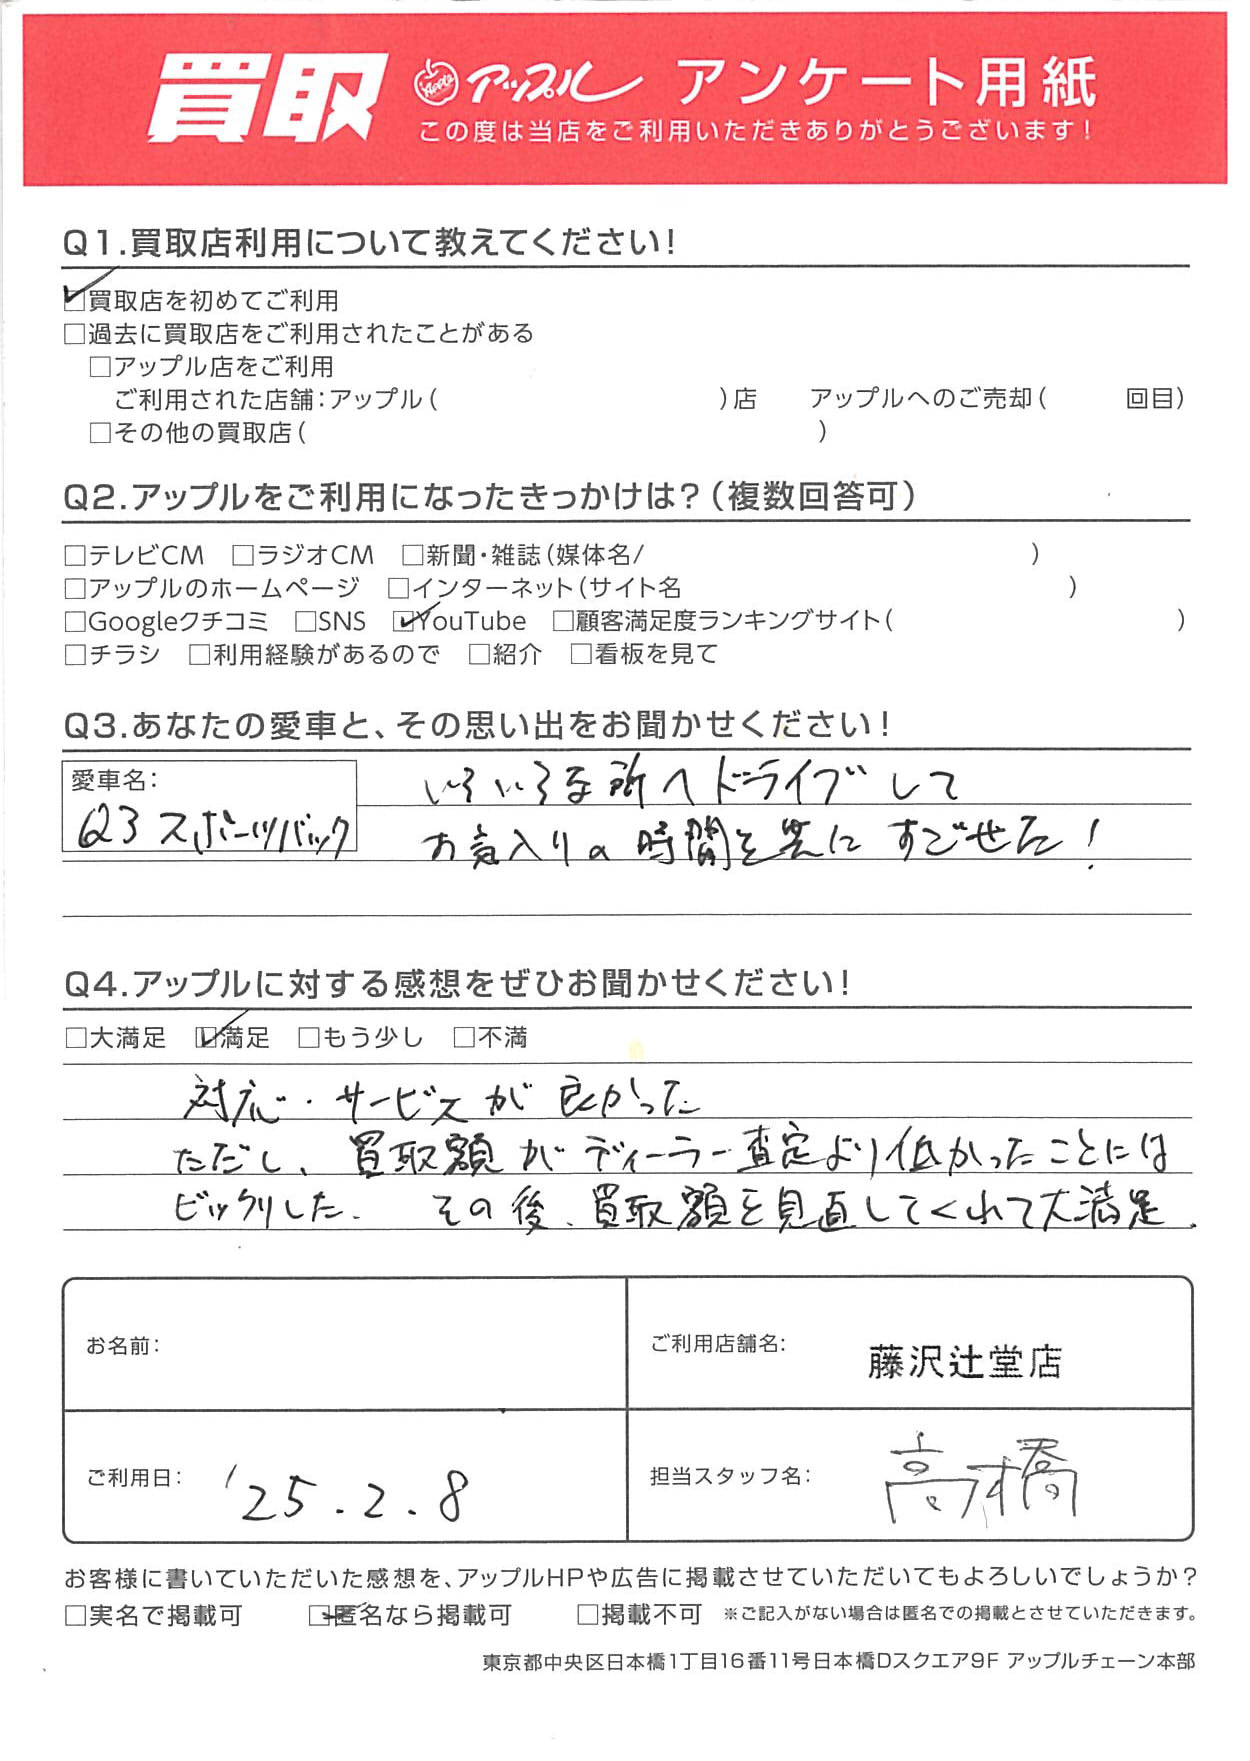 買取 アップル アンケート用紙
この度は当店をご利用いただきありがとうございます!
Q1.買取店利用について教えてください!
☑買取店を初めてご利用
□過去に買取店をご利用されたことがある
□アップル店をご利用
ご利用された店舗:アップル( )店 アップルへのご売却( 回目)
□その他の買取店( )
Q2.アップルをご利用になったきっかけは?(複数回答可)
□テレビCM □ラジオCM □新聞・雑誌(媒体名/ )
□アップルのホームページ □インターネット(サイト名 )
□Googleクチコミ □SNS ☑YouTube □顧客満足度ランキングサイト( )
□チラシ □利用経験があるので □紹介 □看板を見て
Q3.あなたの愛車と、その思い出をお聞かせください!
愛車名:
Q3 スポーツバック
いろいろな所へドライブして
お気入りの時間を共にすごせた!
Q4.アップルに対する感想をぜひお聞かせください!
□大満足 ☑満足 □もう少し □不満
対応・サービスが良かった
ただし、買取額がディーラー査定より低かったことには
ビックリした. その後、買取額を見直してくれて大満足.
お名前:
ご利用店舗名: 藤沢辻堂店
ご利用日: '25.2.8
担当スタッフ名: 高橋
お客様に書いていただいた感想を、アップルHPや広告に掲載させていただいてもよろしいでしょうか?
□実名で掲載可 ☑匿名なら掲載可 □掲載不可 ※ご記入がない場合は匿名での掲載とさせていただきます。
東京都中央区日本橋1丁目16番11号日本橋Dスクエア9F アップルチェーン本部